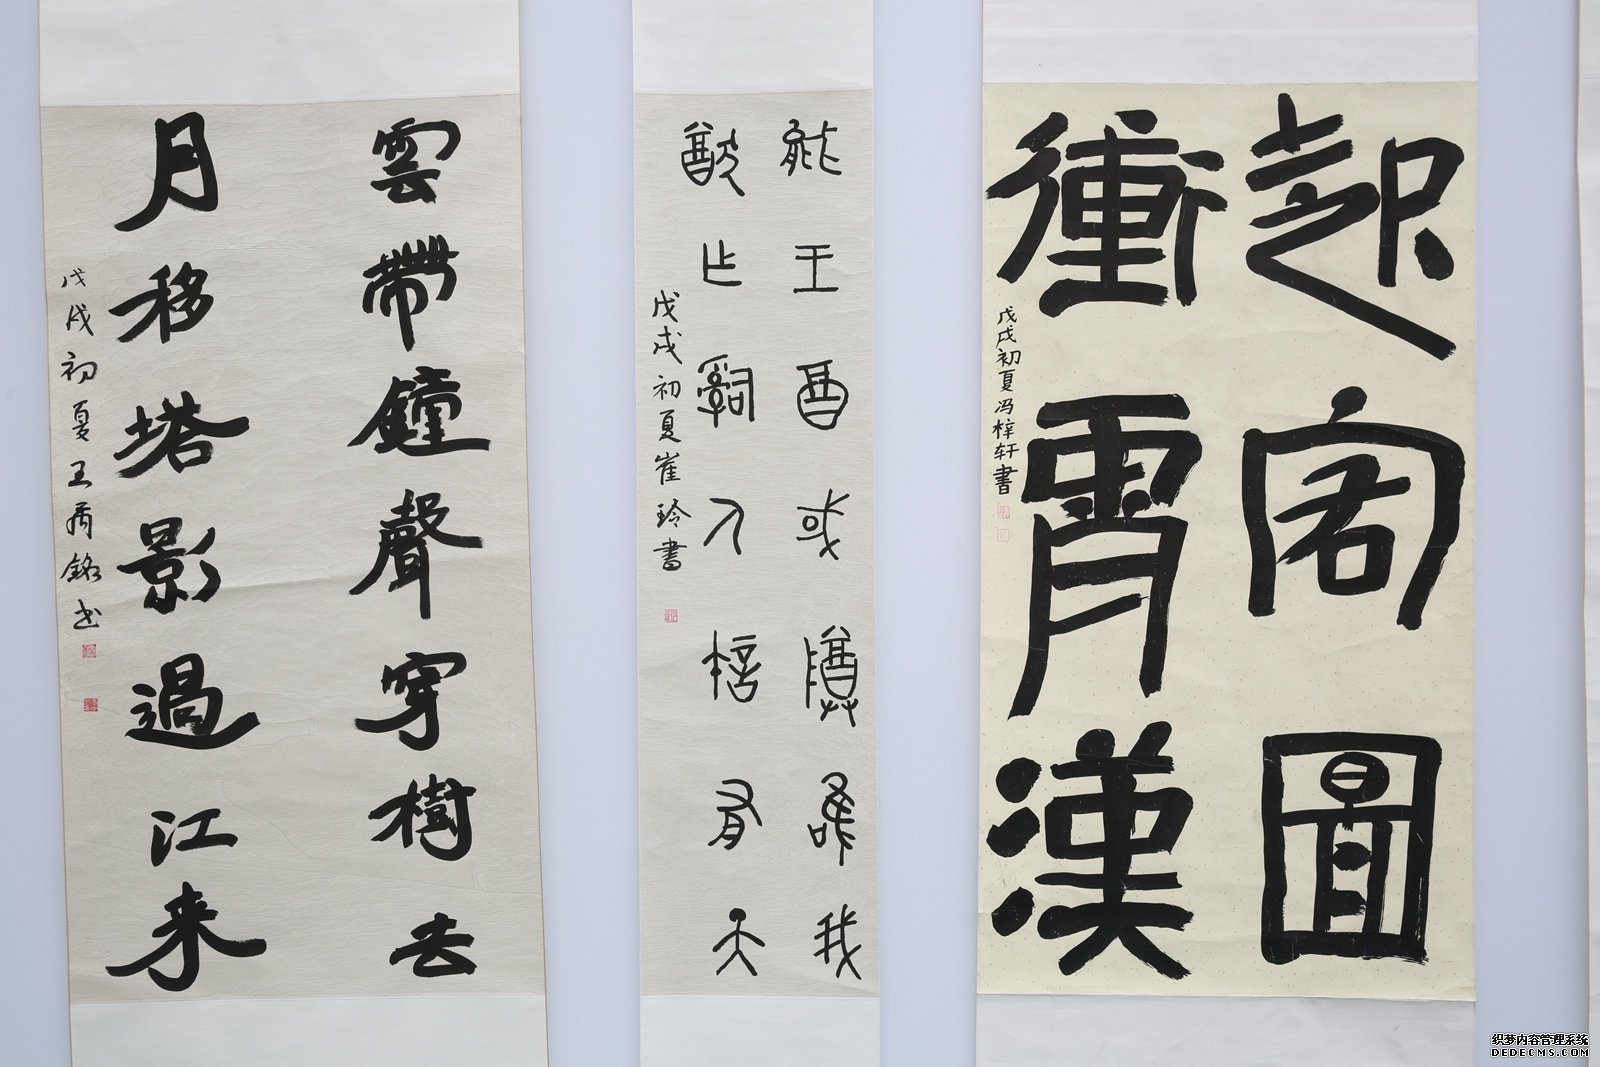 起宏圖
衝霄漢
戊戌初夏冯梓轩書
能王酉或唯我
猷辭入天
戊戌初夏崔玲書
雲帶鐘聲穿樹去
月移塔影過江来
戊戌初夏王銘书
织梦内容管理系统
DEDECMS.COM